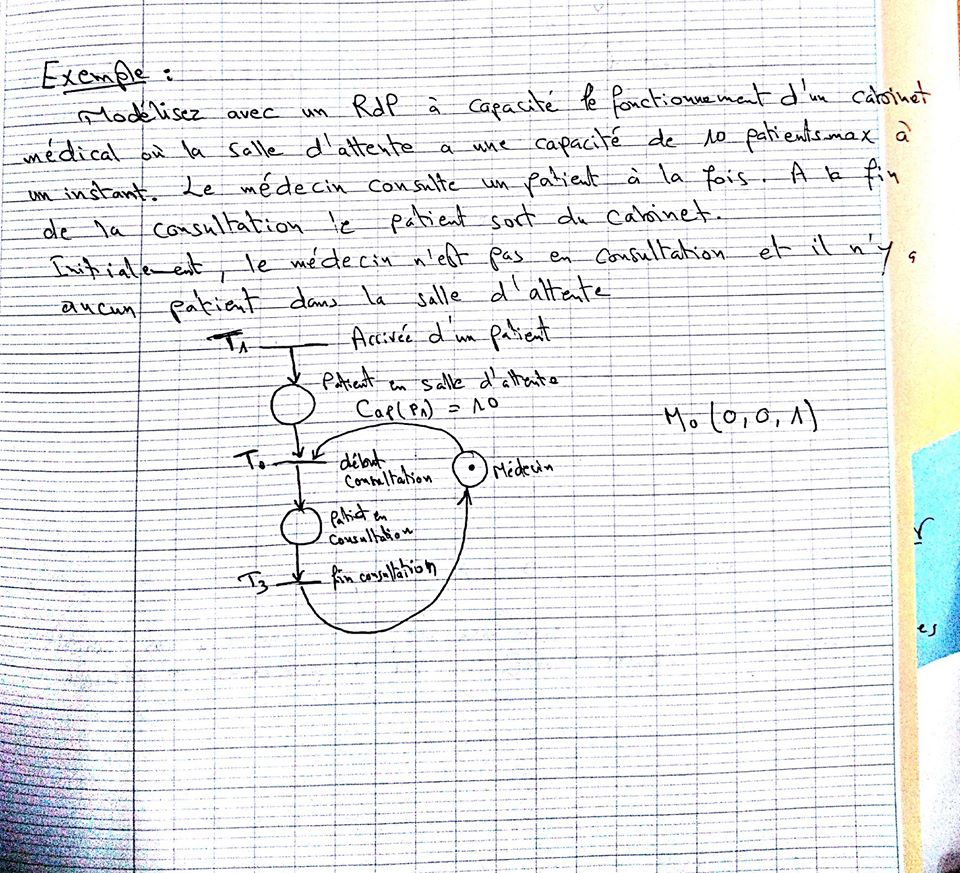 Exemple :
Modélisez avec un RdP à capacité le fonctionnement d'un cabinet
médical où la salle d'attente a une capacité de 10 patients max à
un instant. Le médecin consulte un patient à la fois. A la fin
de la consultation le patient sort du cabinet.
Initialement, le médecin n'est pas en consultation et il n'y a
aucun patient dans la salle d'attente
T1 Arrivée d'un patient
Patient en salle d'attente
Cap(P1) = 10
M0 (0, 0, 1)
début
consultation
Médecin
patient en
consultation
T3 fin consultation
es